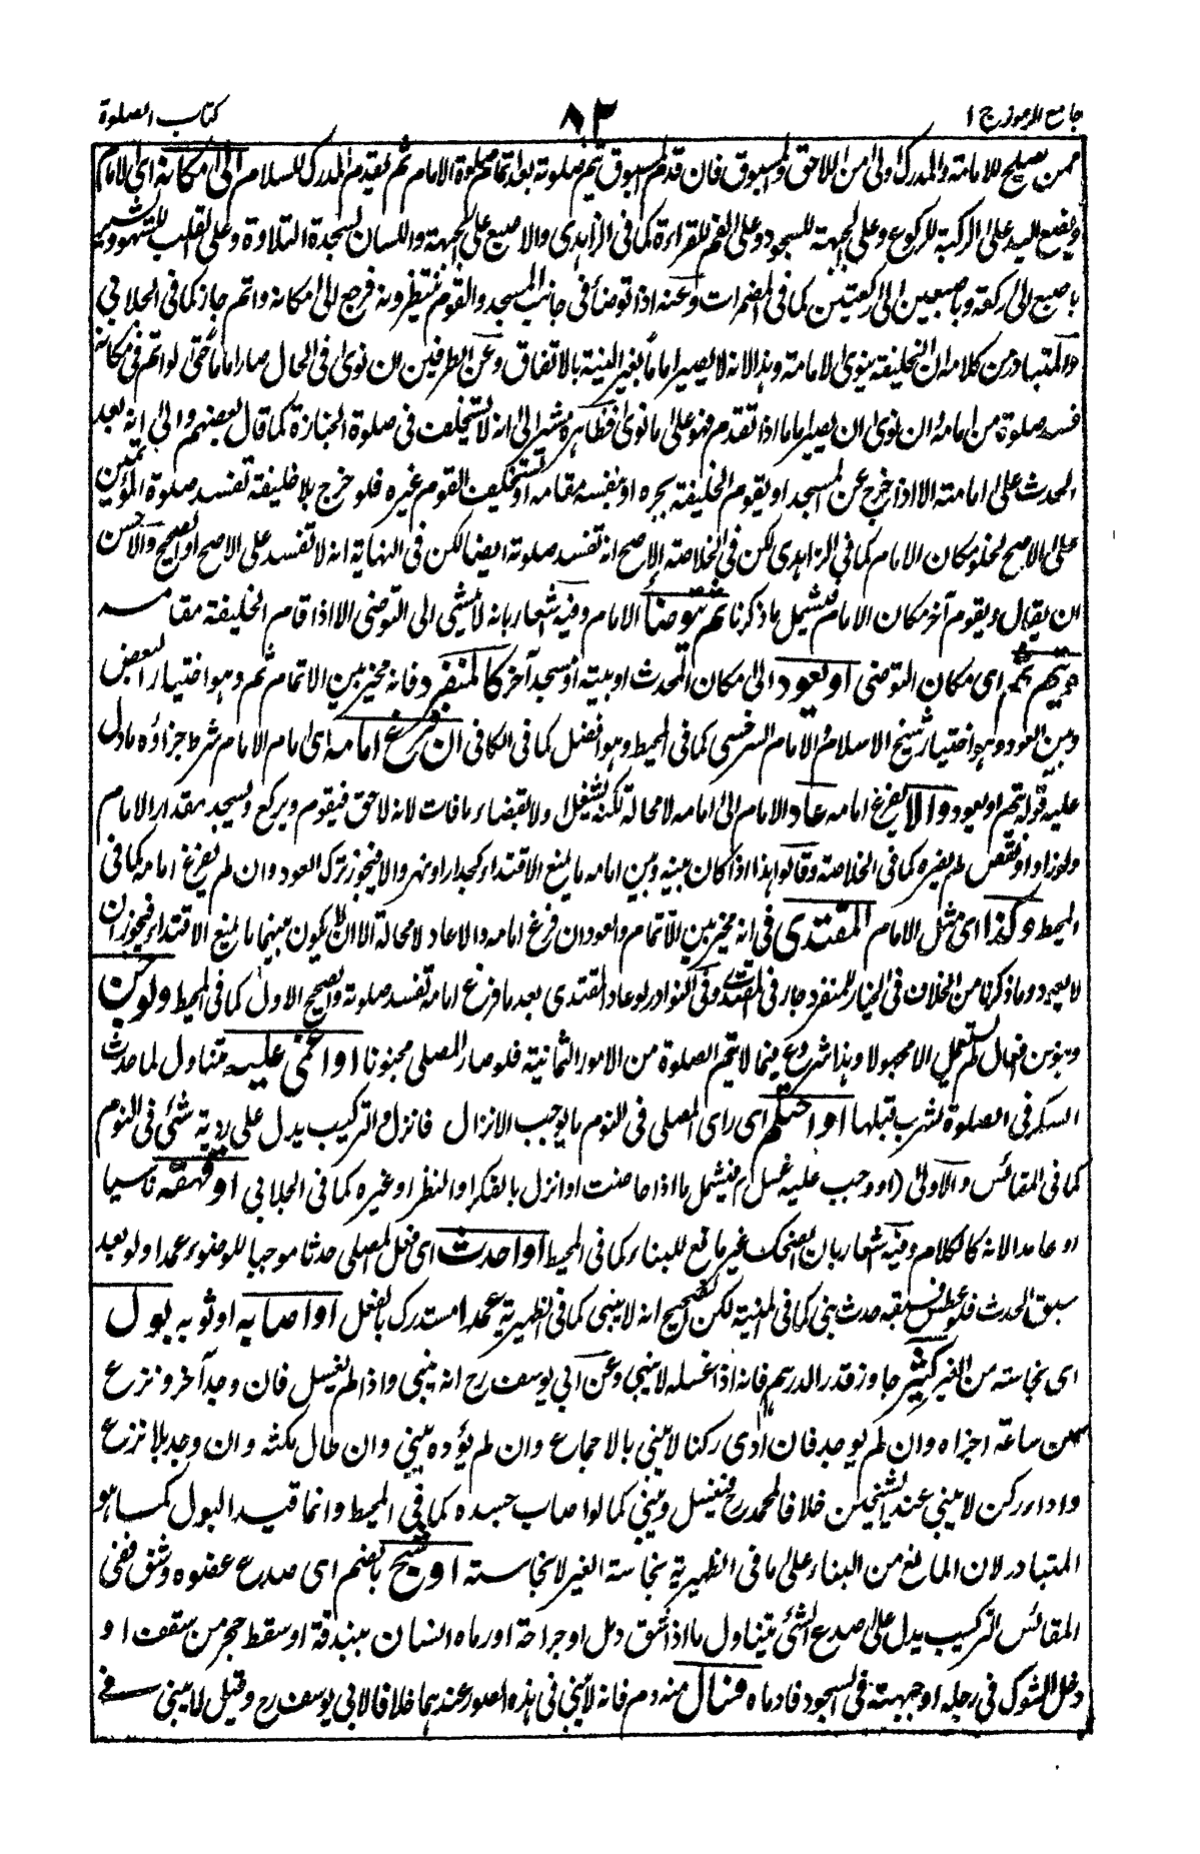 جامع الرموز ج ا
٨٢
كتاب الصلوة
ممن يصلح للامامة والمدرك اولى من اللاحق والمسبوق فان قدم المسبوق يتم صلوته بعد اتمام صلوة الامام ثم يقدم المدرك للسلام الى مكانه اى الامام
ويضع اليد على الركبة للركوع وعلى الجبهة للسجود وعلى الفم للقراءة كما فى الزاهدى والاصبع على الجبهة واللسان لسجدة التلاوة وعلى القلب للسهو ويشير
باصبع الى ركعة وباصبعين الى ركعتين كما فى المضمرات وعنه اذا توضأ فى جانب المسجد والقوم ينتظرونه فرجع الى مكانه واتم جاز كما فى الجلابي
والمتبادر من كلامه ان الخليفة ينوى الامامة وهذا لانه لا يصير اماما بغير النية بالاتفاق وعن الطرفين ان نوى فى الحال صار اماما حتى لو اتم فى مكانه
فسد صلوة من امامه وان نوى ان يصير اماما اذا تقدم فهو على ما نوى فظاهره مشير الى انه لا يستخلف فى صلوة الجنازة كما قال بعضهم والى انه بعد
الحدث على امامته الا اذا خرج عن المسجد او يقوم الخليفة بجره او بنفسه مقامه او يستخلف القوم غيره فلو خرج بلا خليفة تفسد صلوة المؤتمين
على الاصح لخلو مكان الامام كما فى الزاهدى لكن فى الخلاصة الاصح انه تفسد صلوته ايضا لكن فى النهاية انه لا تفسد على الاصح او الصحيح والاحسن
ان يقال ويقوم آخر مكان الامام فيشمل ما ذكرنا ثم يتوضأ الامام وفيه اشعار بانه لا يمشى الى التوضى الا اذا قام الخليفة مقامه
ويتم ثم اى مكان التوضى او يعود الى مكان الحدث او بيته او مسجد آخر كالمنفرد فانه مخير بين الاتمام ثم وهو اختيار البعض
وبين العود وهو اختيار شيخ الاسلام والامام السرخسى كما فى المحيط وهو افضل كما فى الكافى ان فرغ امامه اى امام الامام شرط جزاؤه ما دل
عليه قوله يتم او يعود والا يفرغ امامه عاد الامام الى امامه لا محالة لكنه يشتغل اولا بقضاء ما فات لانه لاحق فيقوم ويركع ويسجد مقدار الامام
ولو زاد او نقص لم يضره كما فى الخلاصة وقالوا هذا اذا كان بينه وبين امامه ما يمنع الاقتداء كجدار او نهر والا فيجوز ترك العود وان لم يفرغ امامه كما فى
المحيط وكذا اى مثل الامام المقتدى فى انه مخير بين الاتمام والعود ان فرغ امامه والا عاد لا محالة الا ان لا يكون بينهما ما يمنع الاقتداء فيجوز ان
لا يعيد وما ذكرنا من الخلاف فى الخيار للمنفرد جار فى المقتدى وفى النوادر لو عاد المقتدى بعد ما فرغ امامه تفسد صلوته والصحيح الاول كما فى المحيط ولو جن
وهو من افعال لم يستعمل الا مجهولا وهذا شروع فيما لا يتم الصلوة من الامور الثمانية فلو صار المصلى مجنونا او اغمى عليه متناول لما حدث
السكر فى الصلوة لشرب قبلها او احتلم اى راى المصلى فى النوم ما يوجب الانزال فانزل والتركيب يدل على روية شئ فى النوم
كما فى المقائس والاولى (او وجب عليه غسل) فيشمل ما اذا حاضت او انزل بالفكر او النظر او غيره كما فى الجلابي او قهقه ناسيا
او عامدا لانه كالكلام وفيه اشعار بان الضحك غير مانع للبناء كما فى المحيط او احدث اى فعل المصلى حدثا موجبا للوضوء عمدا ولو بعد
سبق الحدث فلو عطس فسبقه حدث بنى كما فى المنية لكن الصحيح انه لا يبنى كما فى الظهيرية عمدا مستدرك بالفعل او اصابه او ثوبه بول
اى نجاسة من الغير كثير جاوز قدر الدرهم فانه اذا غسله لا يبنى وعن ابى يوسف رح انه يبنى واذا لم يغسل فان وجد آخر ونزع
من ساعة اجزاه وان لم يوجد فان ادى ركنا لا يبنى بالاجماع وان لم يؤده يبنى وان طال مكثه وان وجد بلا نزع
واداء ركن لا يبنى عند الشيخين خلافا لمحمد رح فيغسل ويبنى كما لو اصاب جسده كما فى المحيط وانما قيد البول كما هو
المتبادر لان المانع من البناء على ما فى الظهيرية نجاسة الغير لا نجاسته او شج بالضم اى صدع عضوه وشق ففى
المقائس التركيب يدل على صدع الشئ يتناول ما اذا شق دمل او جراحة او رماه انسان ببندقة او سقط حجر من سقف او
دخل الشوك فى رجله او جبهته فى السجود فادماه فسال منه دم فانه لا يبنى فى هذه الصور عندهما خلافا لابى يوسف رح وقيل لا يبنى فى